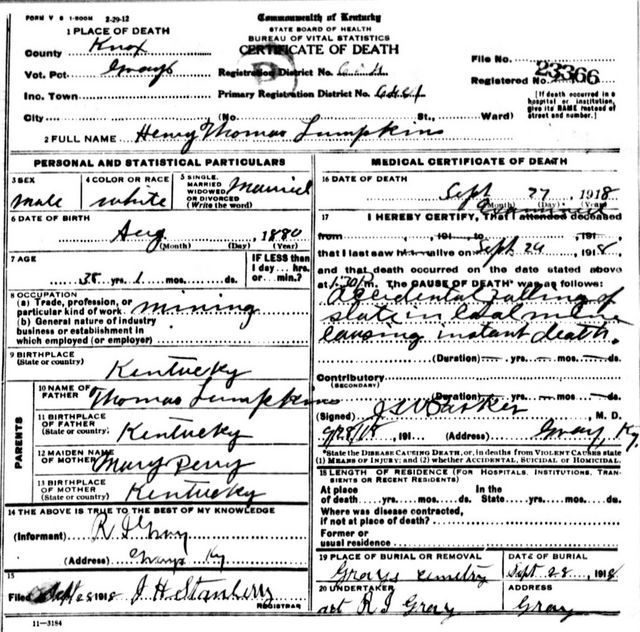 FORM V S 1-500M 2-29-12
Commonwealth of Kentucky
STATE BOARD OF HEALTH
BUREAU OF VITAL STATISTICS
CERTIFICATE OF DEATH
1 PLACE OF DEATH
County Knox
Vot. Pct Grays
Inc. Town
City
Registration District No.
Primary Registration District No.
(No St., Ward)
File No. 23366
Registered No.
[If death occurred in a hospital or institution, give its NAME instead of street and number.]
2 FULL NAME Henry Thomas Lumpkins
PERSONAL AND STATISTICAL PARTICULARS
3 SEX
male
4 COLOR OR RACE
white
5 SINGLE, MARRIED WIDOWED OR DIVORCED (Write the word)
Married
6 DATE OF BIRTH
Aug 1880
(Month) (Day) (Year)
7 AGE
38 yrs. 1 mos. ds.
IF LESS than 1 day... hrs. or min.?
8 OCCUPATION
(a) Trade, profession, or particular kind of work mining
(b) General nature of industry
business or establishment in
which employed (or employer)
9 BIRTHPLACE
(State or country)
Kentucky
PARENTS
10 NAME OF FATHER Thomas Lumpkins
11 BIRTHPLACE OF FATHER (State or country) Kentucky
12 MAIDEN NAME OF MOTHER Mary Perry
13 BIRTHPLACE OF MOTHER (State or country) Kentucky
14 THE ABOVE IS TRUE TO THE BEST OF MY KNOWLEDGE
(Informant) R I Gray
(Address) Grays Ky
15
Filed Sept 28 1918 J H Stanberry
REGISTRAR
11-3184
MEDICAL CERTIFICATE OF DEATH
16 DATE OF DEATH
Sept 27, 1918
(Month) (Day) (Year)
17 I HEREBY CERTIFY, That I attended deceased
from , 191 to , 191
that I last saw h alive on Sept 2 1918,
and that death occurred on the date stated above
at 1:30 m. The CAUSE OF DEATH* was as follows:
Accidental falling of
slate in coal mine
causing instant death.
(Duration) yrs. mos. ds.
Contributory
(SECONDARY)
(Duration) yrs. mos. ds.
(Signed) Barker, M. D.
9/28/18, 191 (Address) Gray Ky
*State the DISEASE CAUSING DEATH, or, in deaths from VIOLENT CAUSES state
(1) MEANS OF INJURY; and (2) whether ACCIDENTAL, SUICIDAL OR HOMICIDAL.
18 LENGTH OF RESIDENCE (FOR HOSPITALS, INSTITUTIONS, TRANSIENTS OR RECENT RESIDENTS)
At place of death yrs. mos. ds. In the State yrs. mos. ds.
Where was disease contracted,
if not at place of death?
Former or
usual residence
19 PLACE OF BURIAL OR REMOVAL
Grays Cemetry
DATE OF BURIAL
Sept 28, 1918
20 UNDERTAKER
R I Gray
ADDRESS
Gray